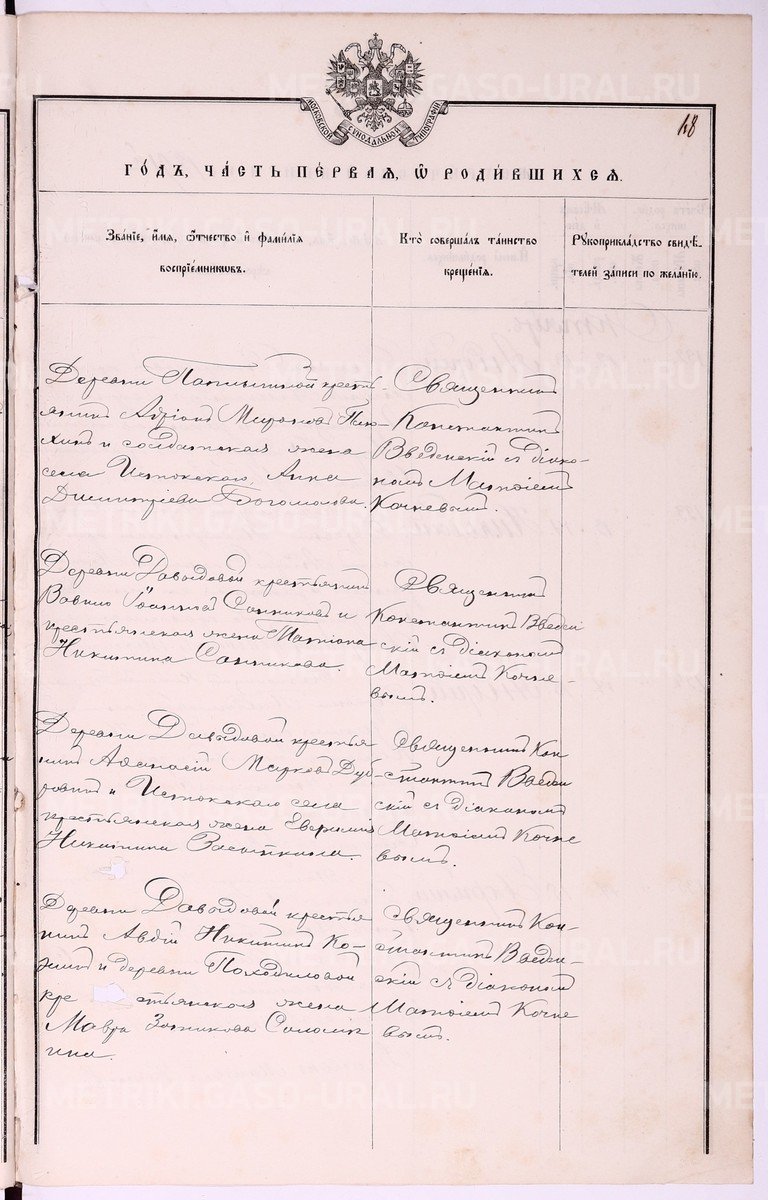 МОСКОВСКОЙ СѴНОДАЛЬНОЙ ТИПОГРАФІИ
18
ГО́ДЪ, ЧА́СТЬ ПЕ́РВАЯ, Ѽ РОДИ́ВШИХСЯ.
Зва́нїе, и҆́мя, ѻ҆́тчество и҆ фами́лїя
воспрїе́мниковъ.
Кто̀ соверша́лъ та́инство
креще́нїя.
Рꙋкоприкла́дство свидѣ́-
телей за́писи по жела́нїю.
Деревни кресть-
янинъ Миронов
и солдатская жена
села Истокскаго, Анна
Димитріева Богомолова.
Священникъ
Константинъ
Введенскій съ діако-
номъ Матѳіемъ
Кочневымъ.
Деревни Давыдовой крестьянинъ
Вавило Іоанновъ Санников и
крестьянская жена Татіана
Никитина Санникова.
Священникъ
Константинъ Введен
скій съ діакономъ
Матѳіемъ Кочне-
вымъ.
Деревни Давыдовой крестья
нинъ Аѳанасій Марковъ Дуб-
ровинъ и Истокскаго села
крестьянская жена Евфимія
Никитина
Священникъ Кон
стантинъ Введен
скій съ діакономъ
Матѳіемъ Кочне
вымъ.
Деревни Давыдовой крестья
нинъ Авдій Никитинъ Ко-
жинъ и деревни Походиловой
кре стьянская жена
Мавра
Священникъ Кон-
стантинъ Введен-
скій съ діакономъ
Матѳіемъ Кочне
вымъ.
METRIKI.GASO-URAL.RU